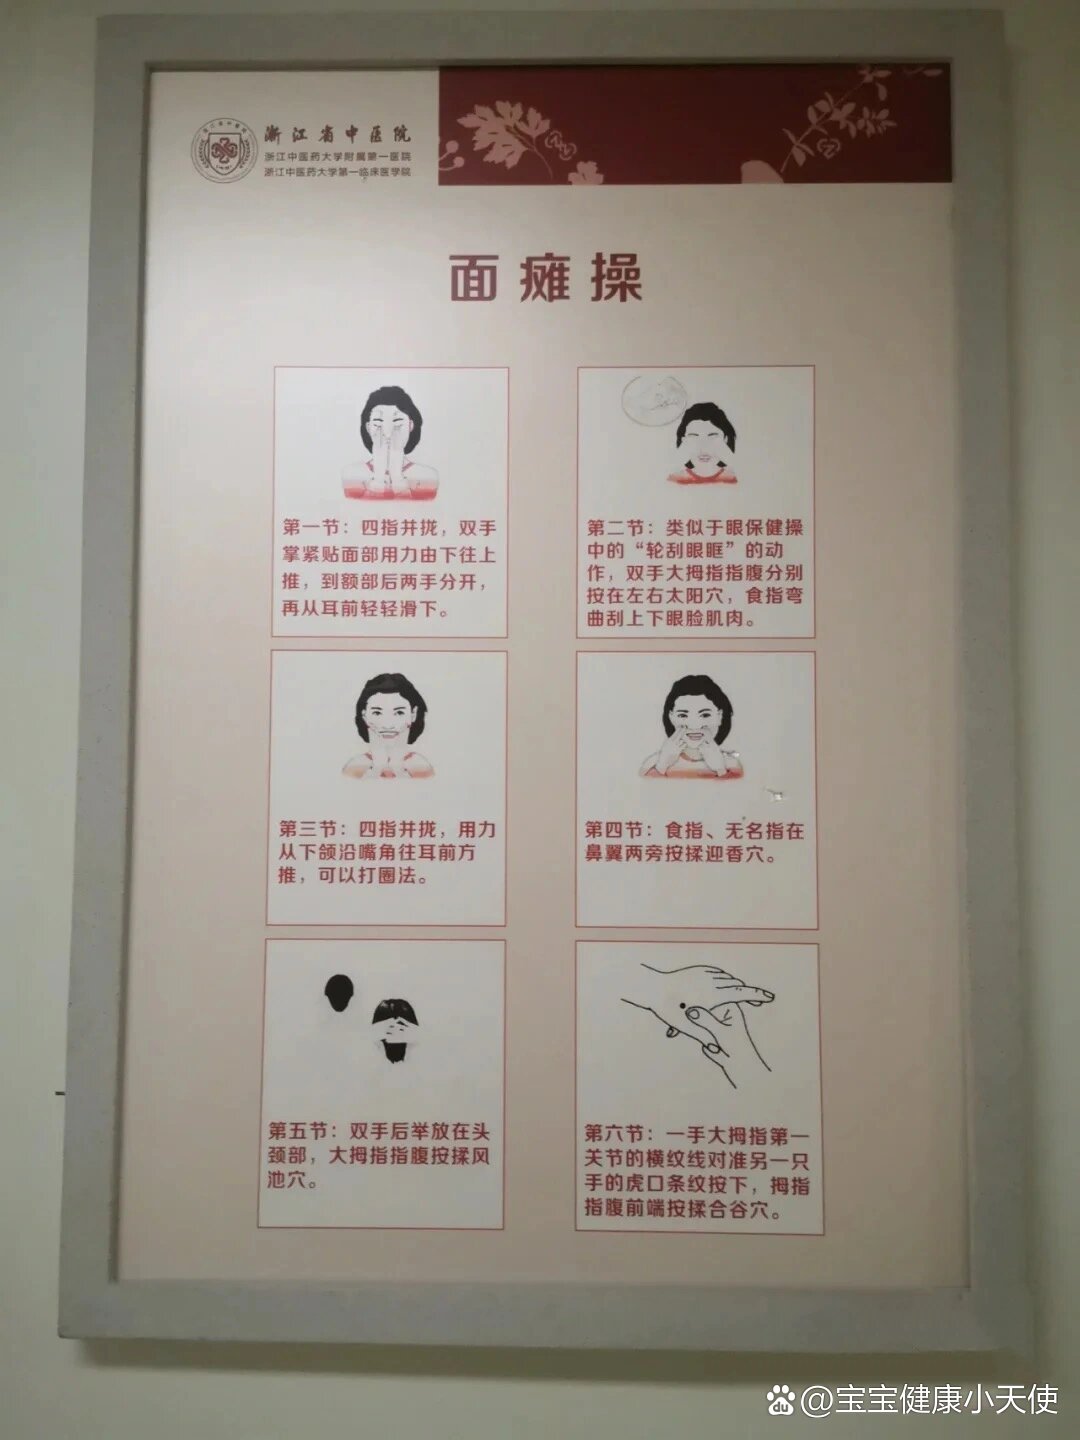 浙江省中医院
浙江中医药大学附属第一医院
浙江中医药大学第一临床医学院
面瘫操
第一节：四指并拢，双手
掌紧贴面部用力由下往上
推，到额部后两手分开，
再从耳前轻轻滑下。
第二节：类似于眼保健操
中的“轮刮眼眶”的动
作，双手大拇指指腹分别
按在左右太阳穴，食指弯
曲刮上下眼脸肌肉。
第三节：四指并拢，用力
从下颌沿嘴角往耳前方
推，可以打圈法。
第四节：食指、无名指在
鼻翼两旁按揉迎香穴。
第五节：双手后举放在头
颈部，大拇指指腹按揉风
池穴。
第六节：一手大拇指第一
关节的横纹线对准另一只
手的虎口条纹按下，拇指
指腹前端按揉合谷穴。
du @宝宝健康小天使